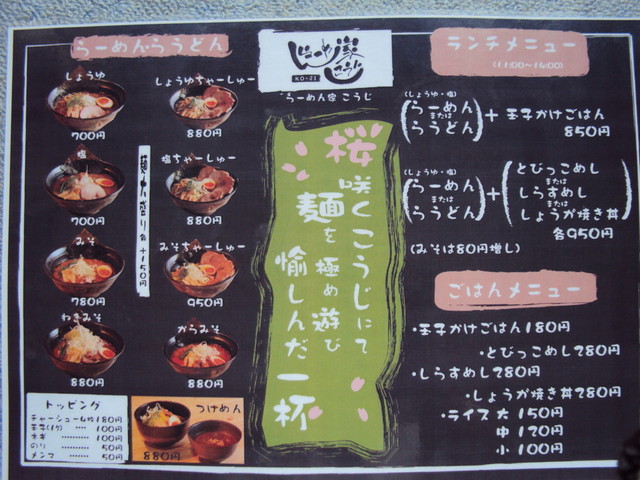 らーめん・らうどん
しょうゆ
700円
しょうゆちゃーしゅー
880円
塩
700円
塩ちゃーしゅー
880円
みそ
780円
みそちゃーしゅー
950円
ねぎみそ
880円
からみそ
880円
麺大盛り各+150円
トッピング
チャーシュー4枚180円
玉子(1ケ) ‥‥‥ 100円
ネギ ‥‥‥ 100円
のり ‥‥‥ 50円
メンマ ‥‥‥ 50円
つけめん
880円
らーめん家 こうじ
KO-21
らーめん家 こうじ
桜咲くこうじにて
麺を極め遊び
愉しんだ一杯
ランチメニュー
(11:00~14:00)
(しょうゆ・塩)
らーめん
または
らうどん
+ 玉子かけごはん
850円
(しょうゆ・塩)
らーめん
または
らうどん
+
とびっこめし
または
しらすめし
または
しょうが焼き丼
各950円
(みそは80円増し)
ごはんメニュー
・玉子かけごはん180円
・とびっこめし280円
・しらすめし280円
・しょうが焼き丼280円
・ライス 大 150円
中 120円
小 100円